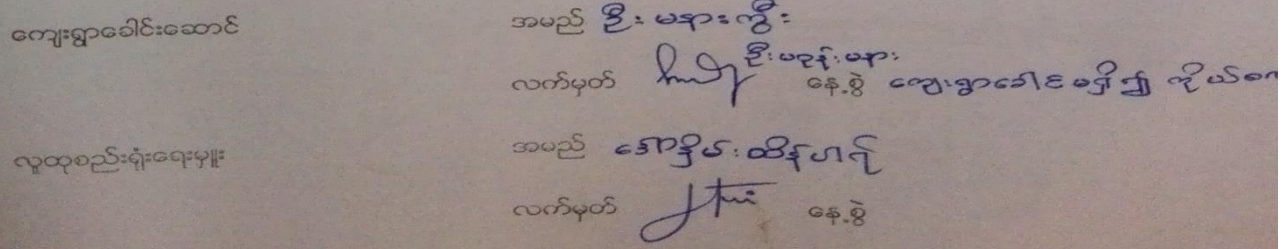 ကျေးရွာခေါင်းဆောင် အမည် ဦး မနားကွီး
ဦးမဒုန်းမနား
လက်မှတ် နေ့စွဲ ကျေးရွာခေါင်းမရှိ၍ ကိုယ်စာ
လူထုစည်းရုံးရေးမှူး အမည် ထိန်ဟင်
လက်မှတ် နေ့စွဲ